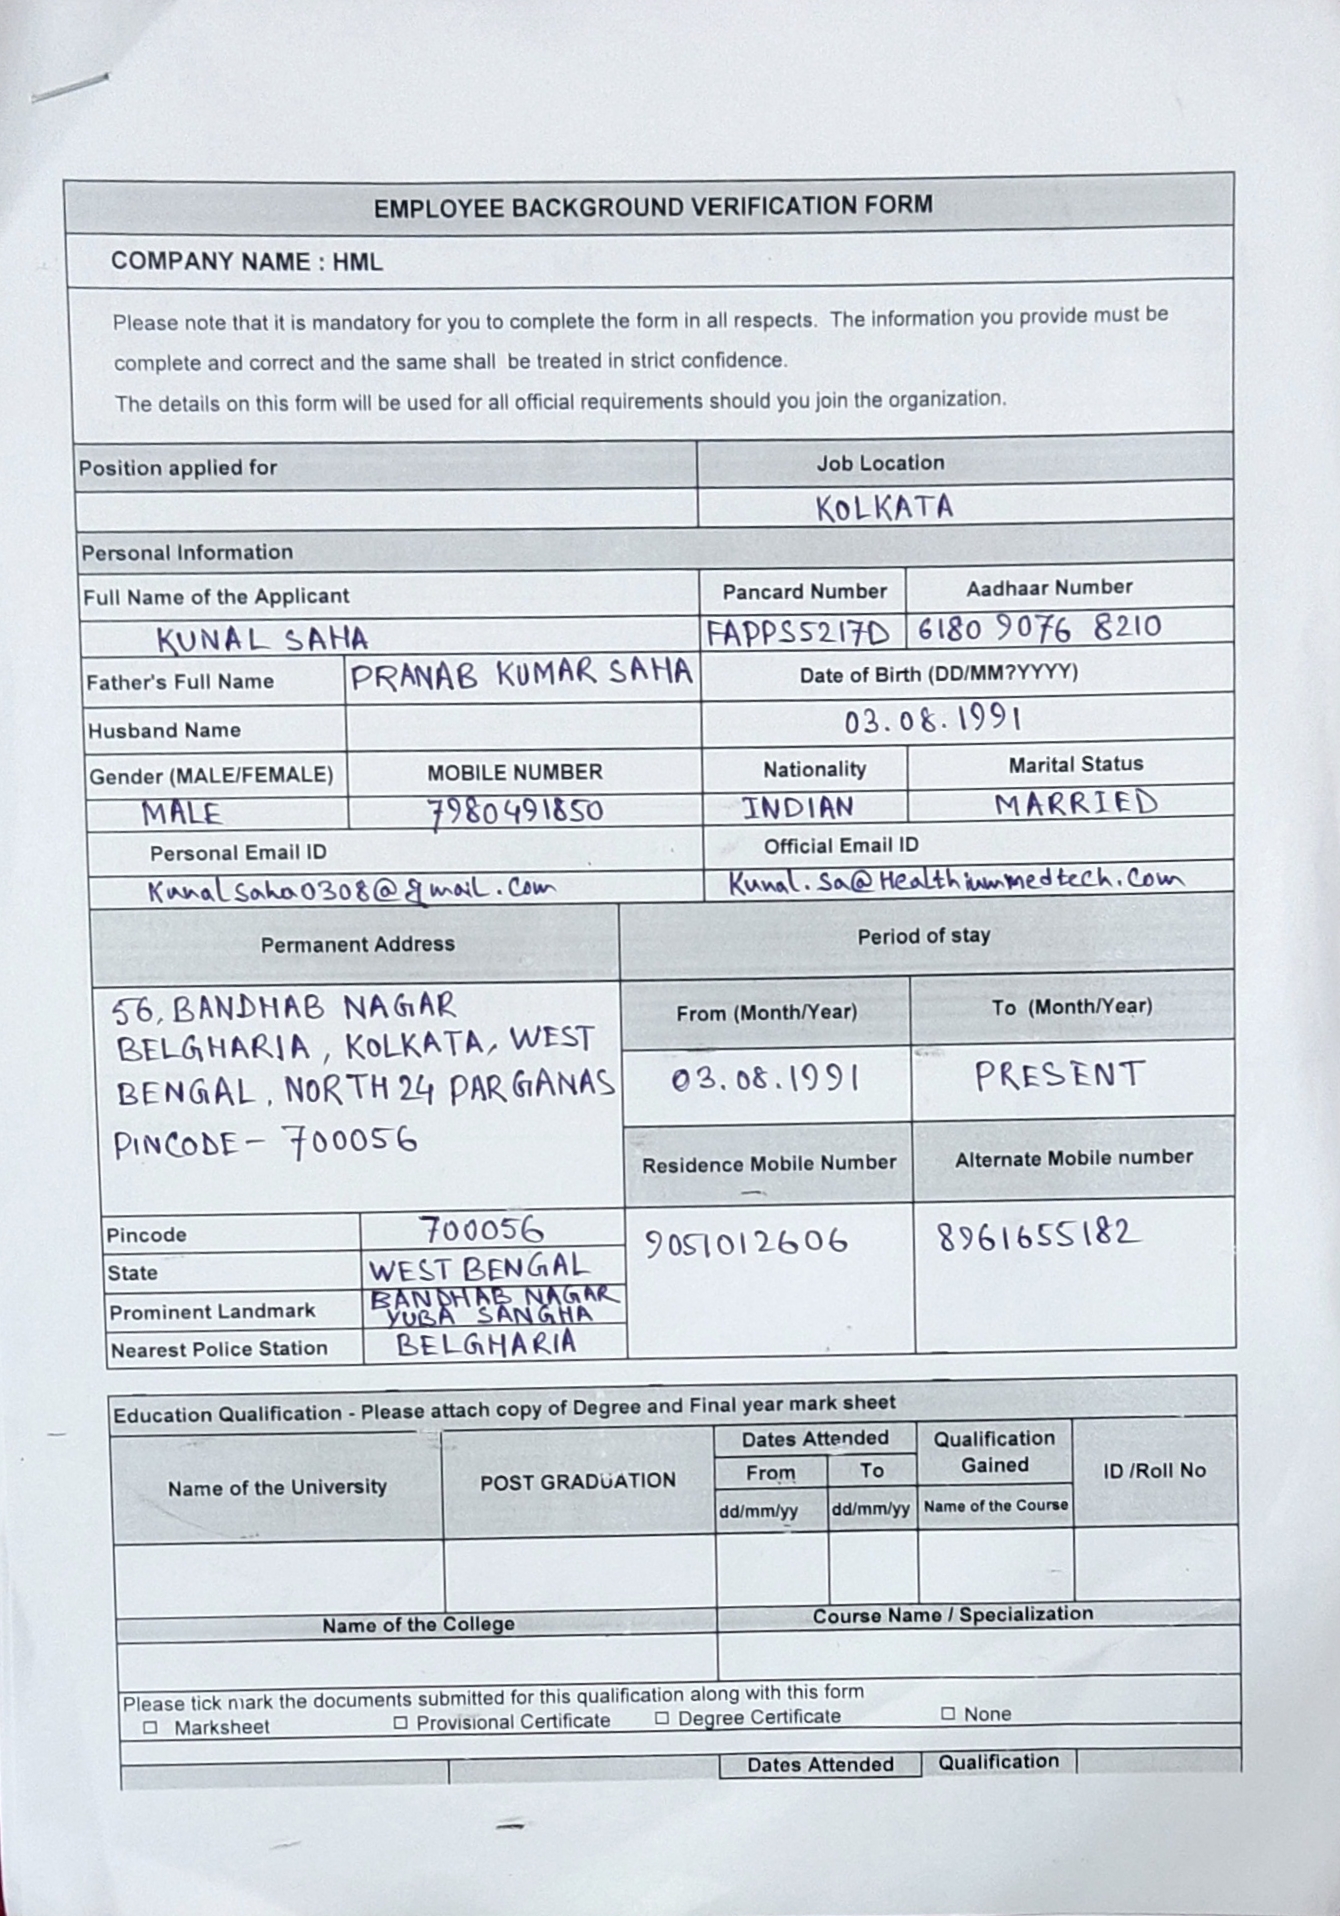 EMPLOYEE BACKGROUND VERIFICATION FORM
COMPANY NAME : HML
Please note that it is mandatory for you to complete the form in all respects. The information you provide must be
complete and correct and the same shall be treated in strict confidence.
The details on this form will be used for all official requirements should you join the organization.
Position applied for Job Location
KOLKATA
Personal Information
Full Name of the Applicant Pancard Number Aadhaar Number
KUNAL SAHA FAPPS5217D 6180 9076 8210
Father's Full Name PRANAB KUMAR SAHA Date of Birth (DD/MM?YYYY)
Husband Name 03.08.1991
Gender (MALE/FEMALE) MOBILE NUMBER Nationality Marital Status
MALE 7980491850 INDIAN MARRIED
Personal Email ID Official Email ID
Kunalsaha0308@gmail.com Kunal.Sa@Healthiummedtech.com
Permanent Address Period of stay
56, BANDHAB NAGAR
BELGHARIA, KOLKATA, WEST
BENGAL, NORTH 24 PARGANAS
PINCODE - 700056
From (Month/Year) To (Month/Year)
03.08.1991 PRESENT
Residence Mobile Number Alternate Mobile number
9051012606 8961655182
Pincode 700056
State WEST BENGAL
Prominent Landmark BANDHAB NAGAR
YUBA SANGHA
Nearest Police Station BELGHARIA
Education Qualification - Please attach copy of Degree and Final year mark sheet
Name of the University POST GRADUATION Dates Attended Qualification
Gained ID /Roll No
From To
dd/mm/yy dd/mm/yy Name of the Course
Name of the College Course Name / Specialization
Please tick mark the documents submitted for this qualification along with this form
☐ Marksheet ☐ Provisional Certificate ☐ Degree Certificate ☐ None
Dates Attended Qualification